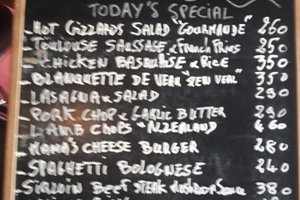 TODAY'S SPECIAL
- HOT GIZZARDS SALAD "GOURMANDE" 260
- TOULOUSE SAUSAGE + FRENCH FRIES 250
- CHICKEN BASQUAISE + RICE 350
- BLANQUETTE DE VEAU "NZ VEAL" 350
- LASAGNA + SALAD 290
- PORK CHOP + GARLIC BUTTER 290
- LAMB CHOPS "NZEALAND" 460
- MAMA'S CHEESE BURGER 280
- SPAGHETTI BOLOGNESE 240
- SIRLOIN BEEF STEAK MUSHROOM SAUCE 380